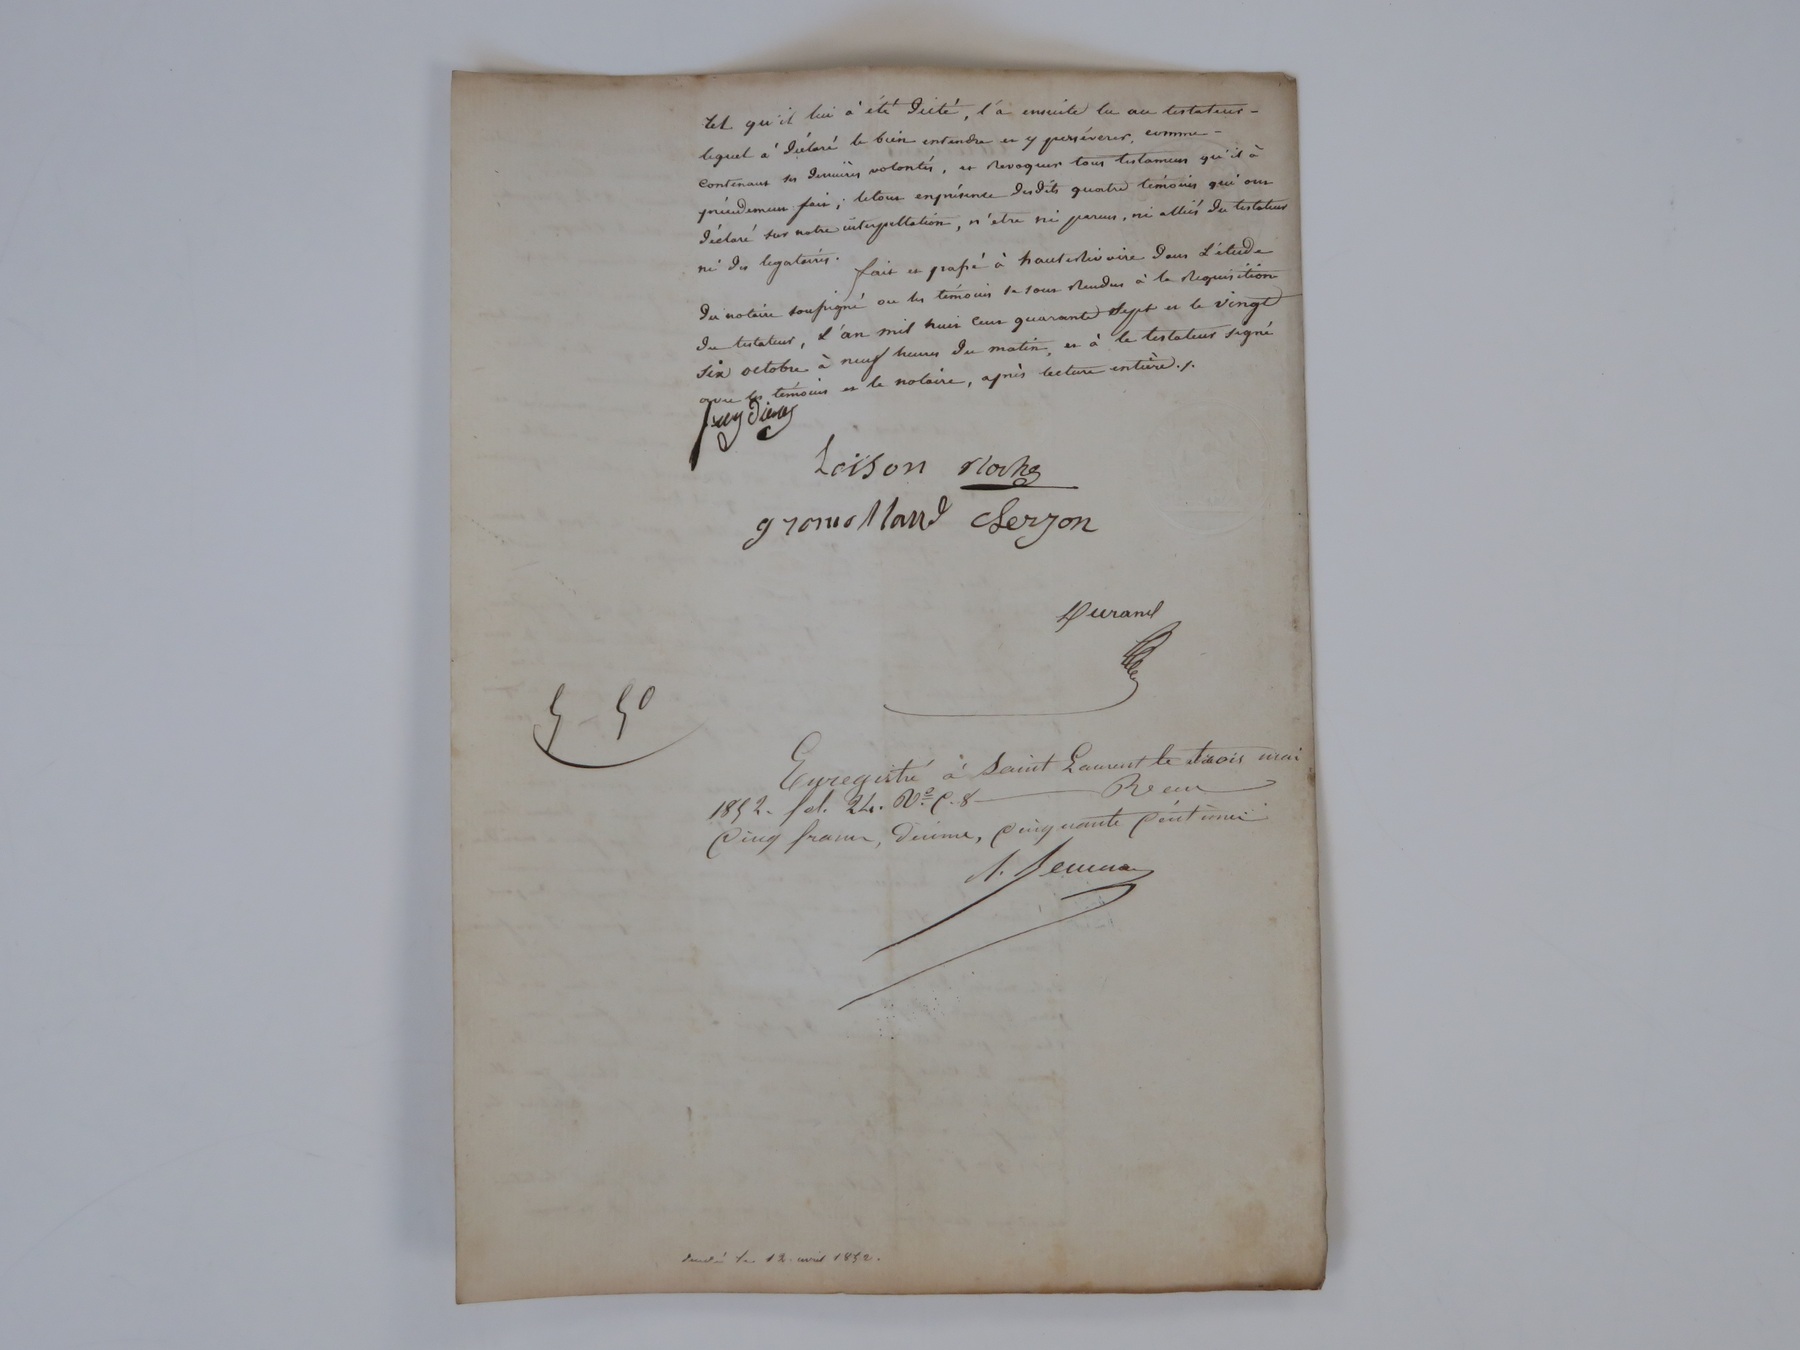 tel qu'il lui à été dicté, l'a ensuite lu au testateur -
lequel a déclaré le bien entendre et y perséverer, comme -
contenant ses dernières volontés, et revoquer tous testamens qu'il à
précédemment fait; letout enprésence desdits quatre témoins qui ont
déclaré sur notre interpellation, n'etre ni parens, ni alliés du testateur
ni des legatoires.
fait et passé à hauterivoire dans L'étude
du notaire soussigné ou les témoins se sont Rendus à la Requisition
du testateur, L'an mil huit Cent quarante Sept et le vingt
six octobre à neuf heures du matin, et à le testateur signé
avec les témoins et le notaire, après lecture entière./.
Loison Roche
Cherzon
Durand
5 50
Enregistré à Saint Laurent le trois mai
1852. fol. 24. Vº. C. 8 Recu
Cinq francs, décime, cinquante centimes
décédé le 12 avril 1852.